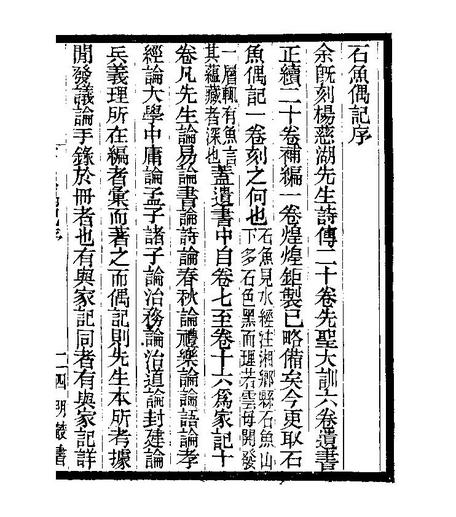 石魚偶記序
余既刻楊慈湖先生詩傳二十卷先聖大訓六卷遺書
正續二十卷補編一卷煌煌鉅製已略備矣今更取石
魚偶記一卷刻之何也
石魚見水經注湘鄉縣石魚山
下多石色黑而理若雲母開發
一層輒有魚言
其蘊藏者深也
蓋遺書中自卷七至卷十六爲家記十
卷凡先生論易論書論詩論春秋論禮樂論論語論孝
經論大學中庸論孟子諸子論治務論治道論封建論
兵義理所在編者彙而著之而偶記則先生本所考據
閒發議論手錄於冊者也有與家記同者有與家記詳
四明叢書